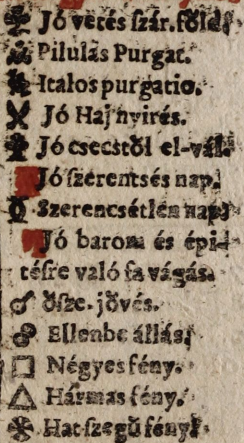 Jó vetés ſzár. főld.
Pilulás Purgat.
Italos purgatio.
Jó Haj nyirés.
Jó csecstől el-vál.
Jó ſzerentsés nap.
Szerencsétlen nap.
Jó barom és épi-
téſre való fa vágás.
☌ őſze-jövés.
☍ Ellenbe állás.
□ Négyes fény.
△ Hármas fény.
Hat ſzegű fény.